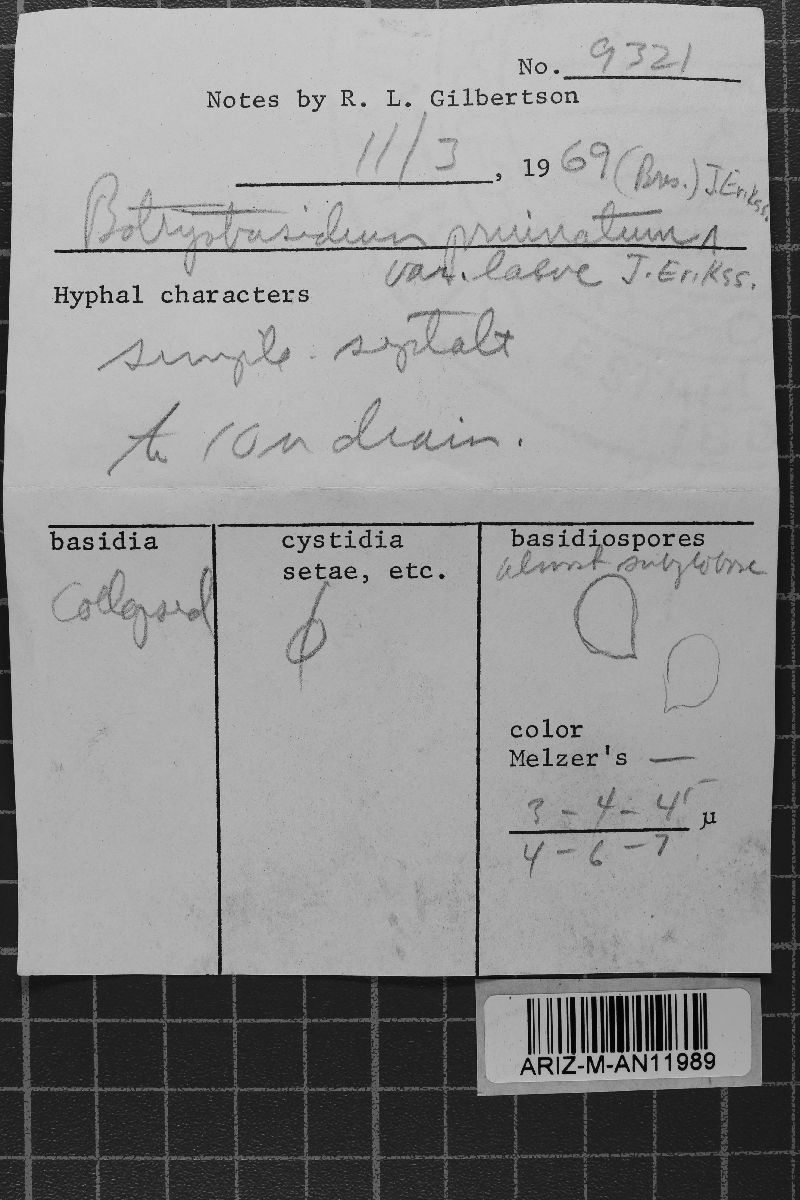 No. 9321
Notes by R. L. Gilbertson
11/3, 1969
Botryobasidium pruinatum (Bres.) J. Erikss.
var. laeve J. Erikss.
Hyphal characters
simple-septate
to 10 µ diam.
basidia
collapsed
cystidia
setae, etc.
basidiospores
almost subglobose
color
Melzer's —
3 - 4 - 4.5
4 - 6 - 7
µ
ARIZ-M-AN11989